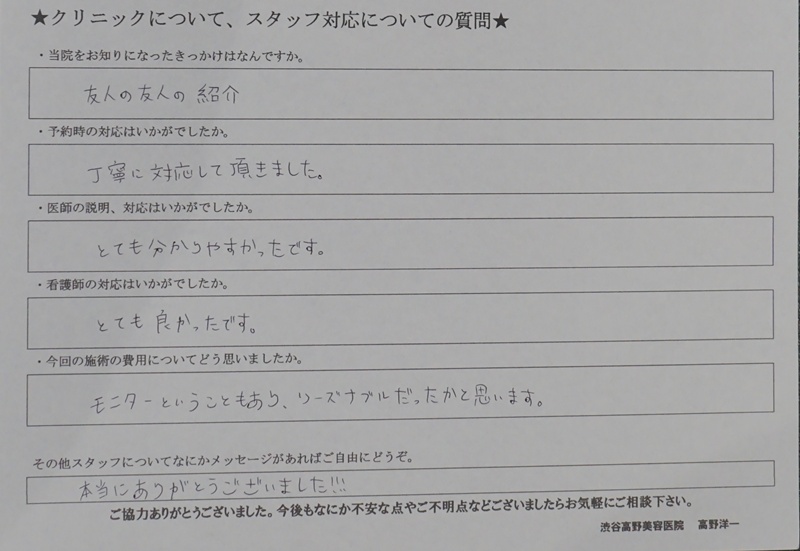 ★クリニックについて、スタッフ対応についての質問★
・当院をお知りになったきっかけはなんですか。
友人の友人の 紹介
・予約時の対応はいかがでしたか。
丁寧に対応して頂きました。
・医師の説明、対応はいかがでしたか。
とても分かりやすかったです。
・看護師の対応はいかがでしたか。
とても良かったです。
・今回の施術の費用についてどう思いましたか。
モニターということもあり、リーズナブルだったかと思います。
その他スタッフについてなにかメッセージがあればご自由にどうぞ。
本当にありがとうございました!!!
ご協力ありがとうございました。今後もなにか不安な点やご不明点などございましたらお気軽にご相談下さい。
渋谷高野美容医院 高野洋一